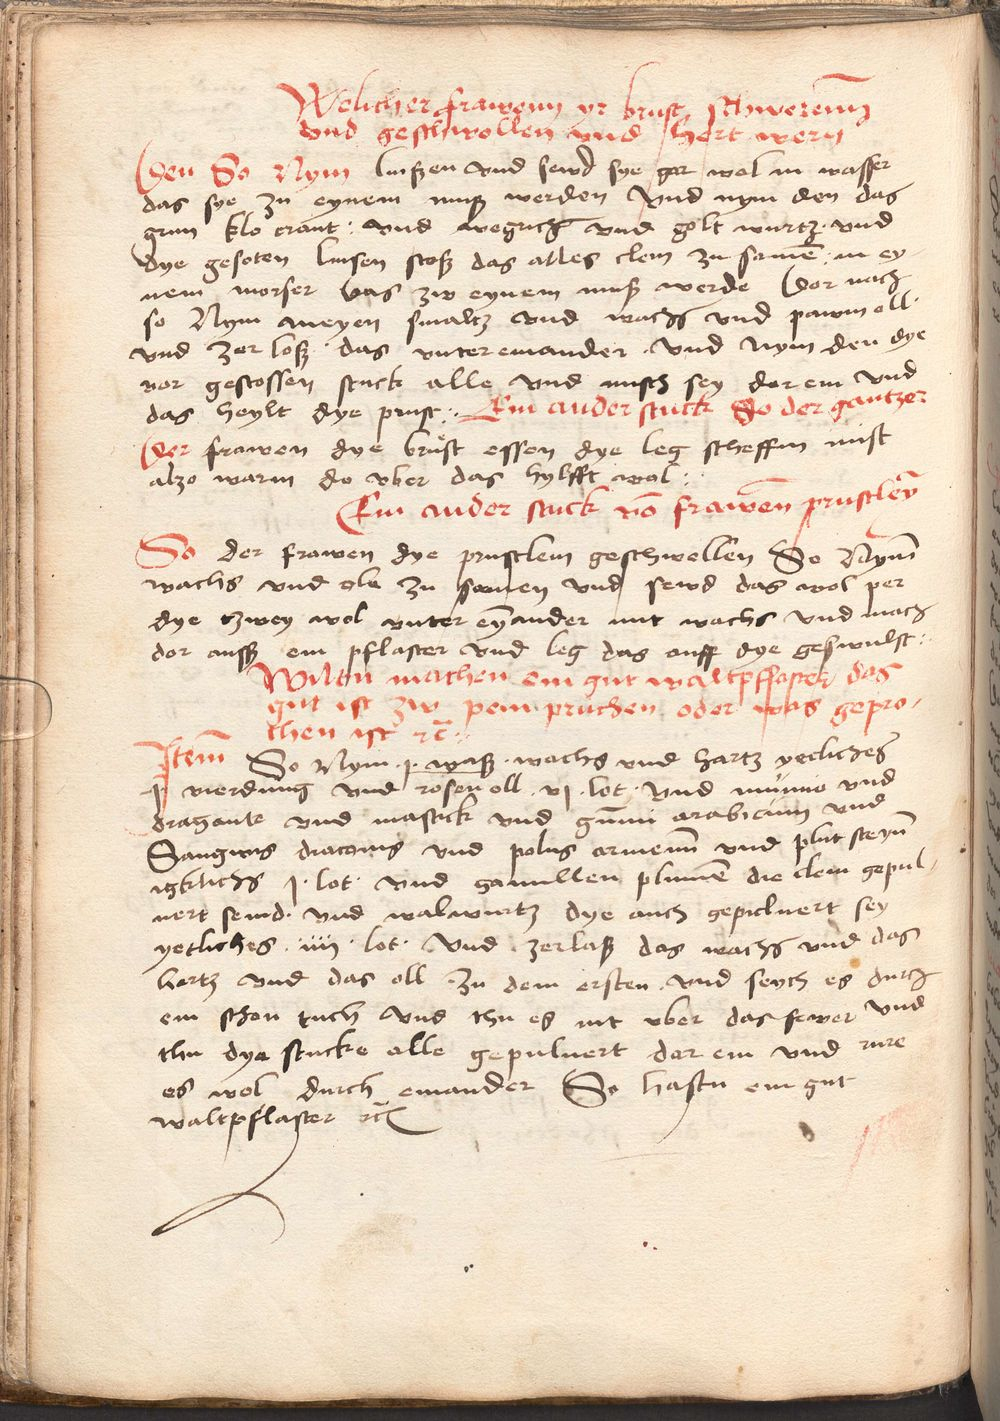 Welicher frawenn yr brust schwerenn
vnd geschwollen vnd hert wern
Den So Nym linßen vnd sewd sye gar wol in wasser
das sye zu eynem muß werden Vnd nym den das
grun klo craut : vnd wegrich vnd golt wurtz · vnd
dye gesoten linsen stoß das alles clein zu samē : in ey-
nem morser das zw eynem muß werde Dor nach
so Nym meyen smaltz vnd wachs vnd pawm oll
vnd zer loß das vnter einander · vnd Nym den dye
vor gestossen stuck alle vnd misch sey dor ein vnd
das heylt dye prust :· Ein ander stuck So der gantzer
Der frawen dye brust essen dye leg scheffin mist
alzo warm do vber das hylfft wol :
Ein ander stuck vō frawen prustleȳ
So der frawen dye prustlein geschwellen So Nym̄
wachs vnd ole zu samen vnd sewd das wol per
dye tzwey wol vnter eyander mit wachs vnd mach
dor auß ein pflaster vnd leg das auff dye geswulst :
Wiltu machen ein gut waltpflaster das
gut ist zw pein pruchen oder was gepro-
chen ist rc̄ :
Item So Nym · j · waß · wachs vnd hartz yetliches
j vierdung vnd rosen oll · vj · lot · Vnd mumia vnd
dragante vnd mastick vnd gūmi arabicum vnd
Sangwis draconis vnd polus armenū vnd plut steyn̄
igklichs j · lot · vnd gamillen plumē die clein gepul-
uert seind · vnd walwurtz dye auch gepuluert sey
yetliches · iiij · lot · Vnd zerlaß das wachs vnd das
hartz vnd das oll · zu dem ersten · vnd seych es durch
ein schon tuch vnd thu es nit vber das fewer vnd
thu dye stucke alle gepuluert dor ein vnd rure
es wol durch einander So hastu ein gut
waltpflaster rc̄